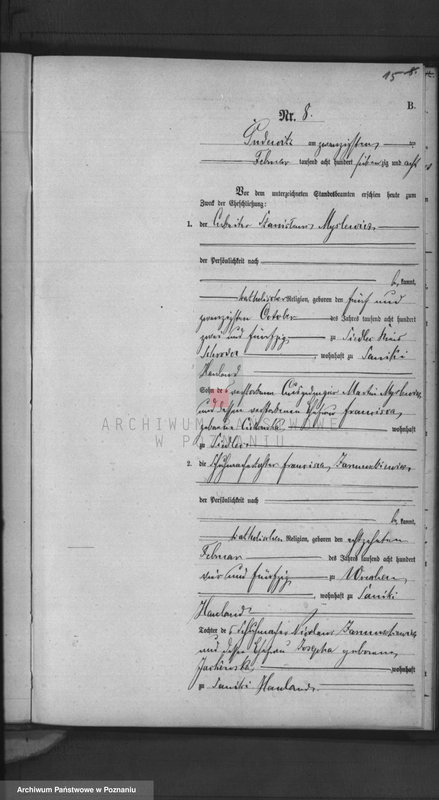 15 8.
B.
Nr. 8.
Pudewitz am zwanzigsten
Februar tausend acht hundert siebenzig und acht
Vor dem unterzeichneten Standesbeamten erschien heute zum
Zweck der Eheschließung:
1. der Arbeiter Stanislaus Myslewicz
der Persönlichkeit nach
kannt,
katholischer Religion, geboren den fünf und
zwanzigsten October des Jahres tausend acht hundert
zwei und fünfzig zu Siedlec Kreis
Schroda, wohnhaft zu
Hauland
Sohn des verstorbenen Martin
und dessen verstorbenen Ehefrau Francisca,
geborene wohnhaft
zu Siedlec
2. die Francisca
der Persönlichkeit nach
kannt,
katholischer Religion, geboren den achtzehnten
Februar des Jahres tausend acht hundert
vier und fünfzig zu
, wohnhaft zu
Hauland
Tochter des Schuhmacher
und dessen Ehefrau Josepha geborene
wohnhaft
zu Hauland.
ARCHIWUM PAŃSTWOWE
W POZNANIU
Archiwum Państwowe w Poznaniu